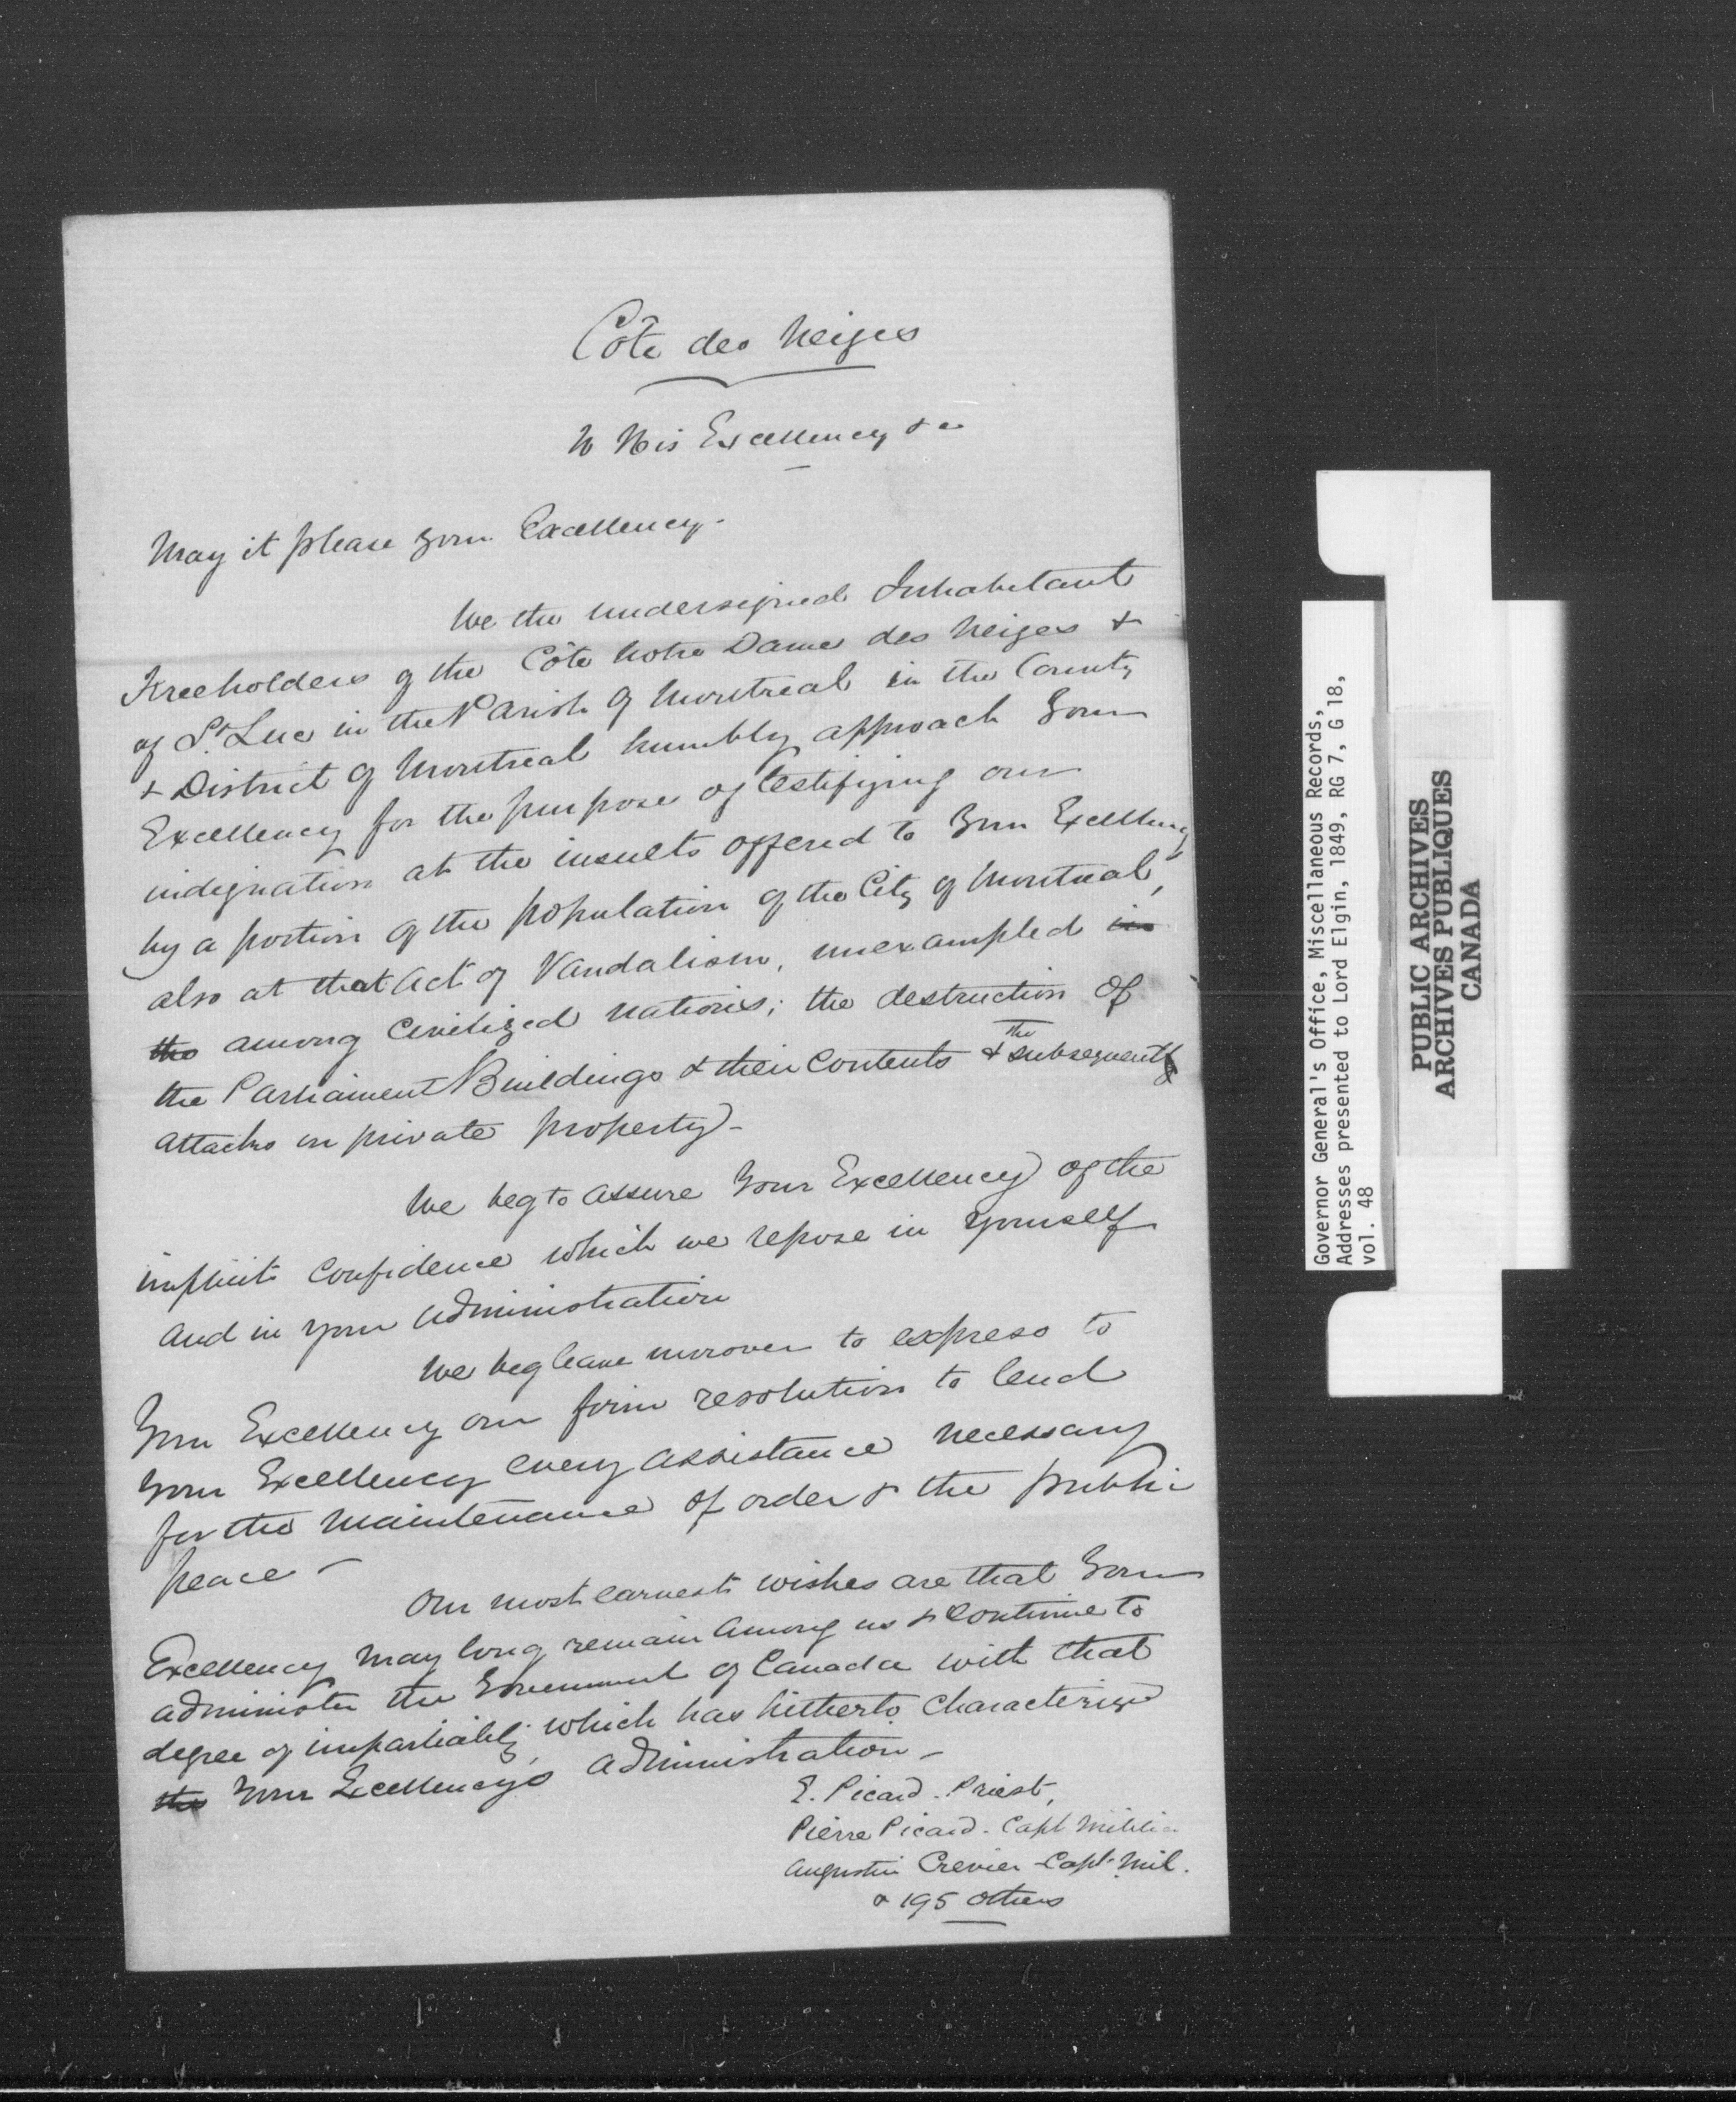 Côte des Neiges
To His Excellency &c
May it please your Excellency.
We the undersigned Inhabitant
Freeholders of the Côte Notre Dame des Neiges &
of St. Luc in the Parish of Montreal in the County
& District of Montreal humbly approach Your
Excellency for the purpose of testifying our
indignation at the insults offered to Your Excellency
by a portion of the population of the City of Montreal,
also at that act of Vandalism, unexampled in
the among Civilized Nations; the destruction of
the Parliament Buildings & their Contents & the subsequent
attacks on private property -
We beg to assure Your Excellency of the
implicit Confidence which we repose in yourself
and in your administration
We beg leave morover to express to
Your Excellency our firm resolution to lend
Your Excellency every assistance necessary
for the maintenance of order & the public
peace -
Our most earnest wishes are that Your
Excellency may long remain among us & Continue to
administer the Government of Canada with that
degree of impartiality, which has hitherto Characterized
the Your Excellencys administration -
E. Picard - Priest,
Pierre Picard - Capt Militia
Augustin Crevier - Capt. Mil.
& 195 others
Governor General's Office, Miscellaneous Records,
Addresses presented to Lord Elgin, 1849, RG 7, G 18,
vol. 48
PUBLIC ARCHIVES
ARCHIVES PUBLIQUES
CANADA